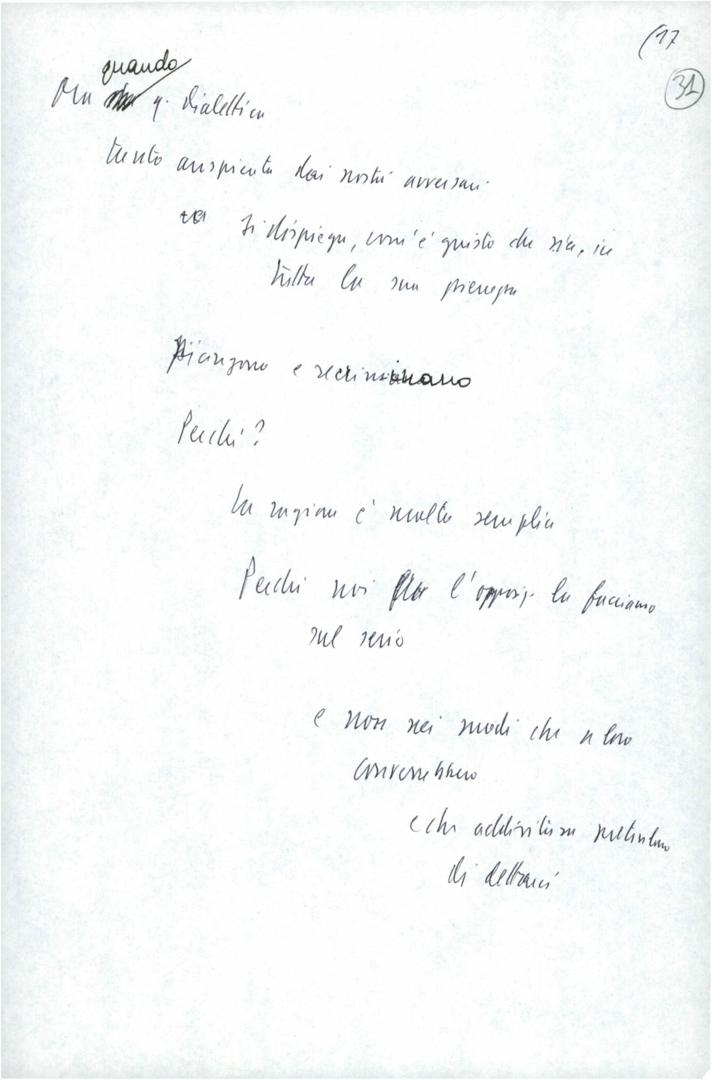 (17
31
quando
Ma q. dialettica
tanto auspicata dai nostri avversari
si dispiega, com'è giusto che sia, in
tutta la sua pienezza
piangono e recriminano
Perché?
La ragione è molto semplice
Perché noi l'opposiz. la facciamo
sul serio
e non nei modi che a loro
converrebbero
e che addirittura pretendono
di dettarci